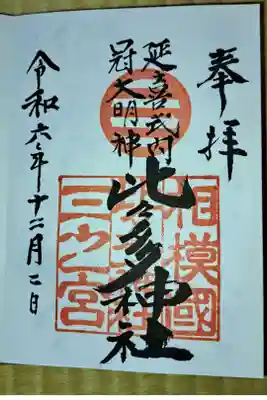 奉拝
延喜式内
冠大明神
比々多神社
相模國
三之宮
令和六年十二月二日